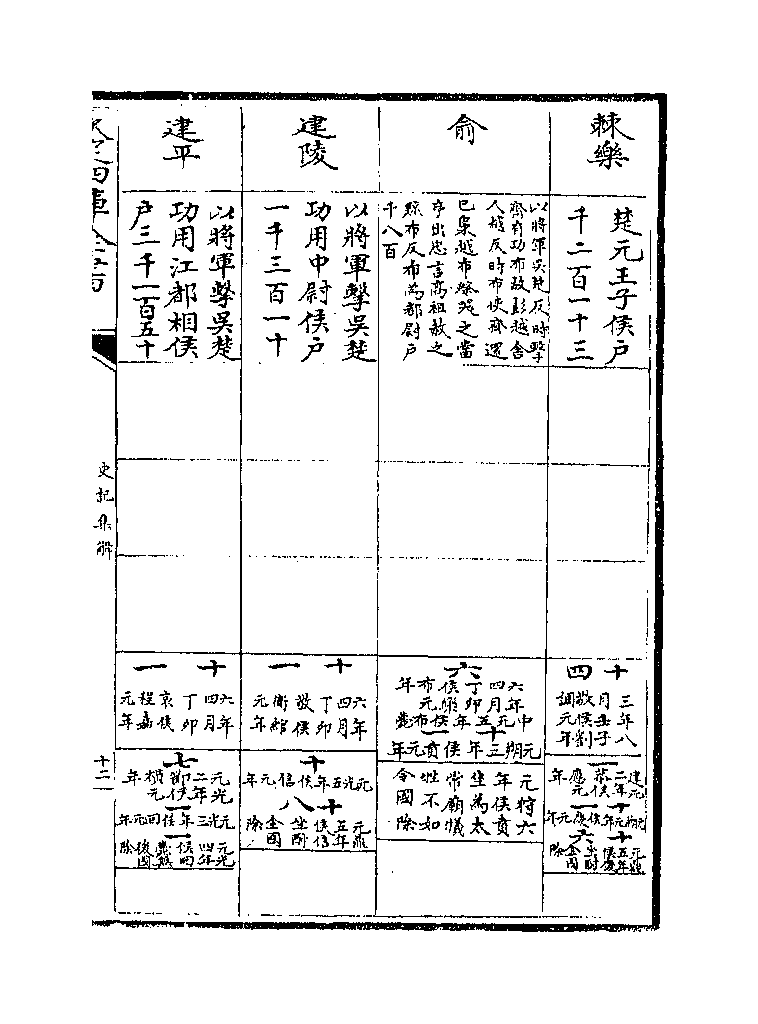 棘樂
楚元王子侯戶
千二百一十三
十四
三年八
月壬子
敬侯劉
調元年
一
建元
二年
恭侯
應元
年
十一
元朔元年侯慶元年
十六
元鼎
五年
侯慶
坐酎
金國
除
俞
以將軍吳楚反時擊
齊有功布故彭越舍
人越反時布使齊還
已梟越布祭哭之當
亨出忠言高祖赦之
黥布反布為都尉戶
千八百
六
六年
四月
丁卯
侯欒
布元
年
中元五年侯布薨
十一
元朔三年侯賁元年
元狩六
年侯賁
坐為太
常廟犧
牲不如
令國除
建陵
以將軍擊吳楚
功用中尉侯戶
一千三百一十
十一
六年
四月
丁卯
敬侯
衛綰
元年
十
元光五年侯信元年
十八
元鼎
五年
侯信
坐酎
金國
除
建平
以將軍擊吳楚
功用江都相侯
戶三千一百五十
十一
六年
四月
丁卯
哀侯
程嘉
元年
七
元光
二年
節侯
橫元
年
一
元光三年侯回元年
一
元光
四年
侯回
薨無
後國
除
欽定四庫全書
史記集解
十二